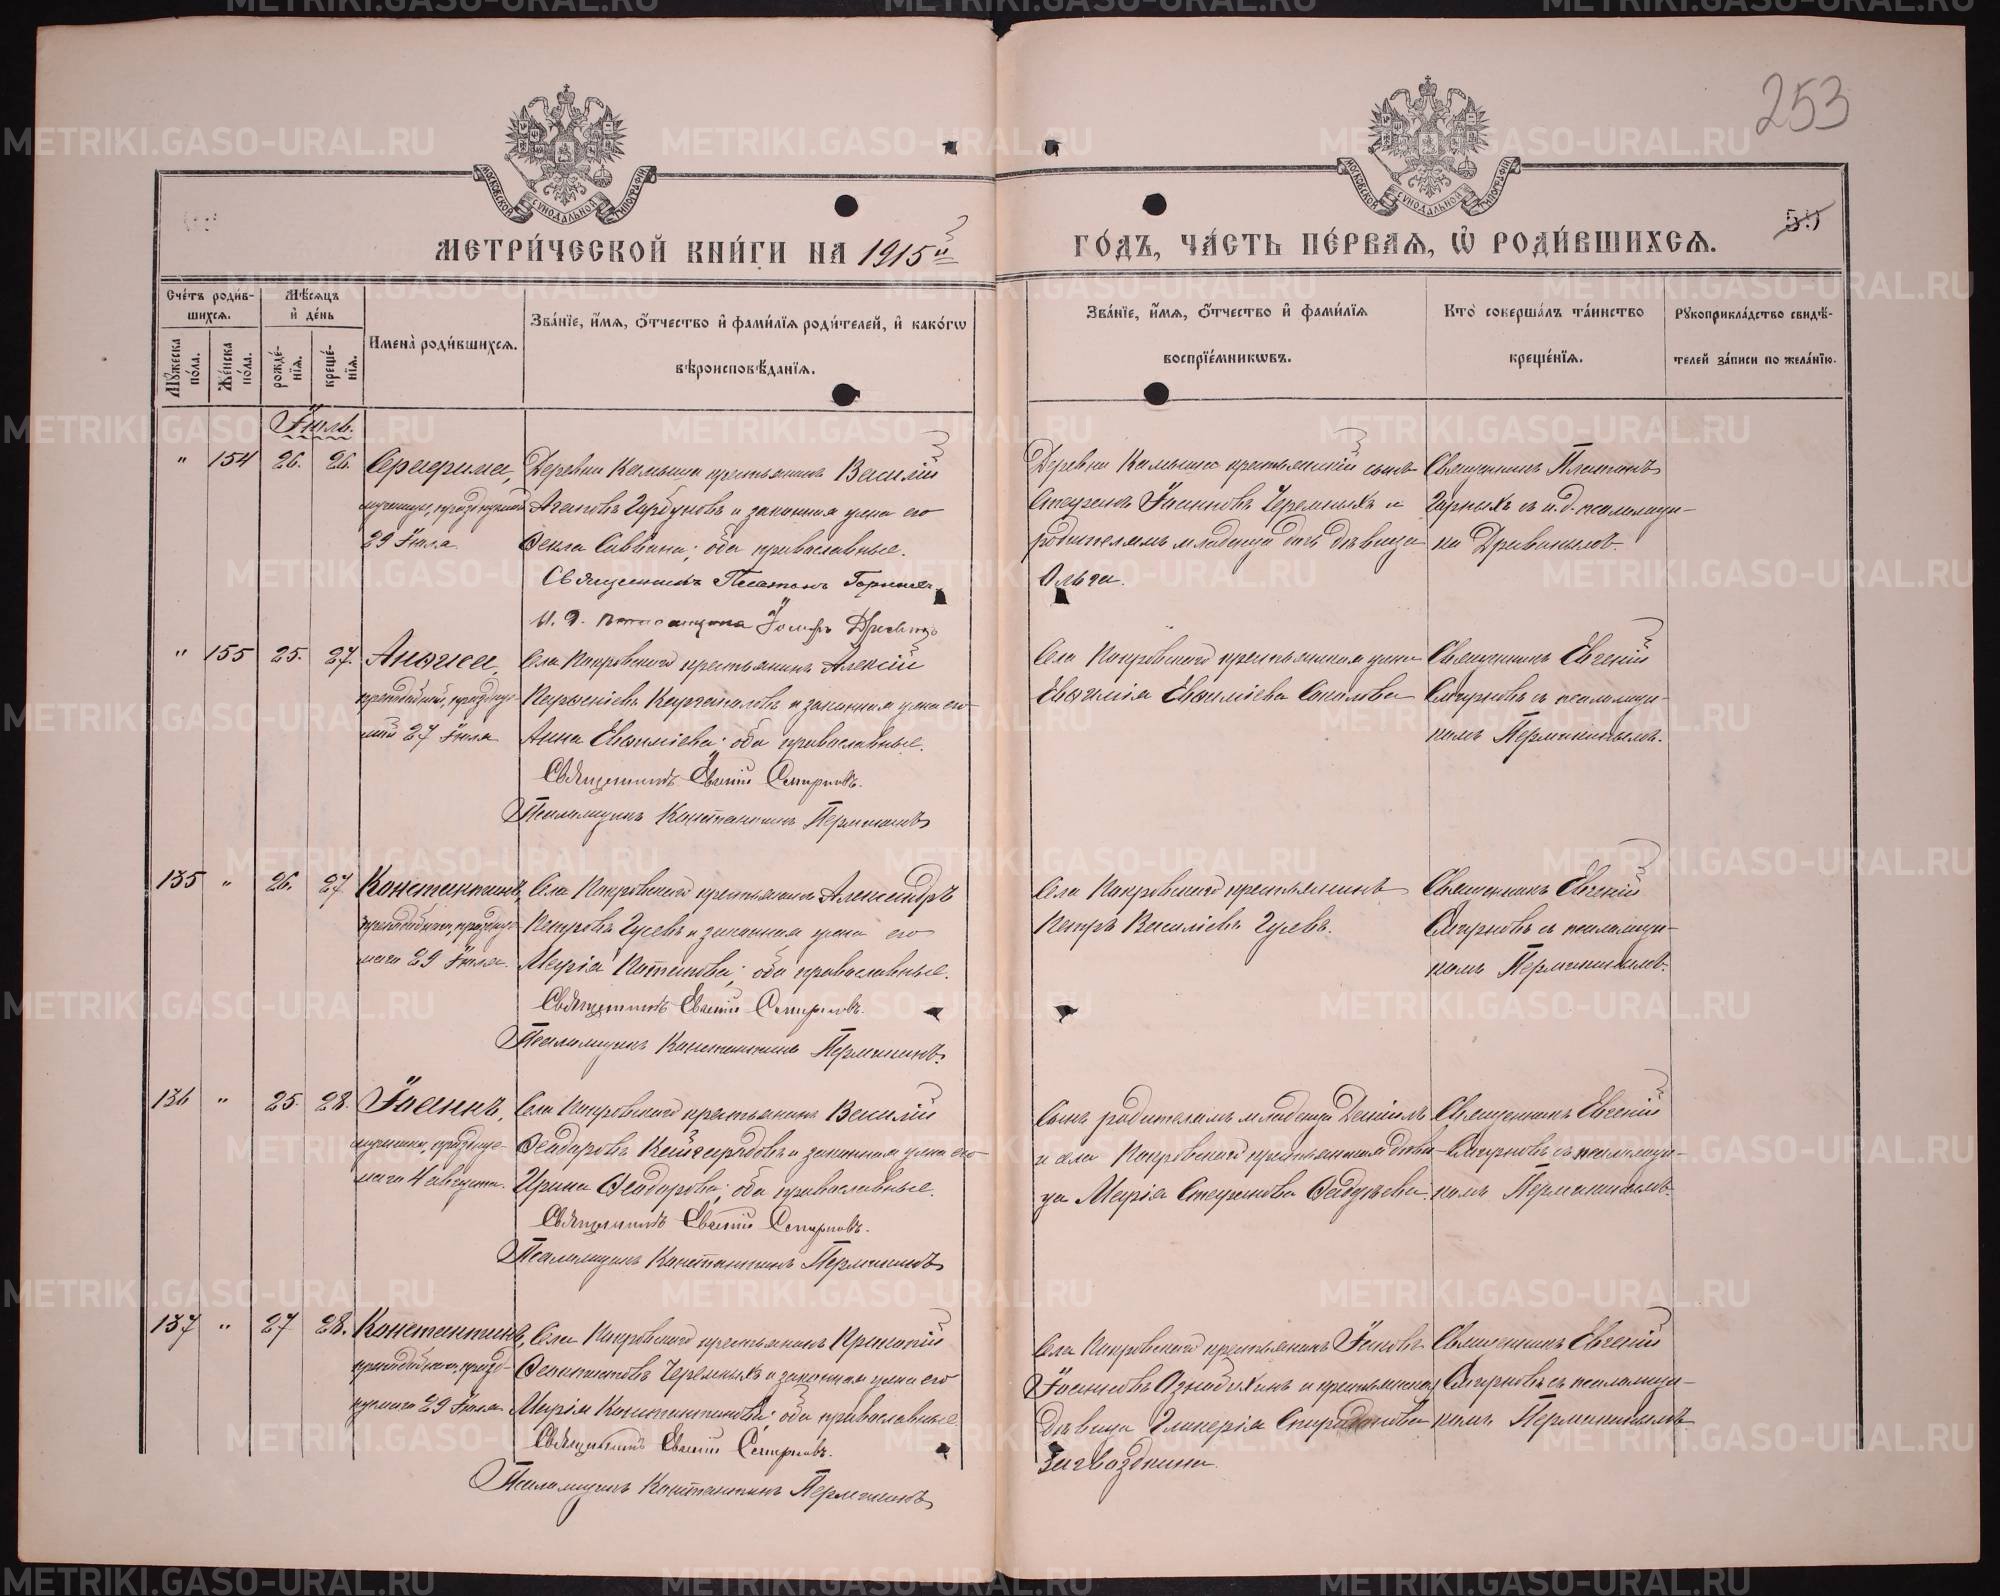 253
МОСКОВСКОЙ СУНОДАЛЬНОЙ ТИПОГРАФІИ
МОСКОВСКОЙ СУНОДАЛЬНОЙ ТИПОГРАФІИ
МЕТРИ́ЧЕСКОЙ КНИ́ГИ НА 1915й
ГО́ДЪ, ЧА́СТЬ ПЕ́РВАѦ, Ѡ҆ РОДИ́ВШИХСѦ.
Сче́тъ роди́в-шихсѧ.
Мѣ́сѧцъ и҆ де́нь
Мꙋ́жеска по́ла.
Же́нска по́ла.
рожде́-нїѧ.
креще́-нїѧ.
Имена̀ роди́вшихсѧ.
Зва́нїе, и҆́мѧ, ѻ҆́тчество и҆ фами́лїѧ роди́телей, и҆ како́гѡ
вѣроисповѣ́данїѧ.
Зва́нїе, и҆́мѧ, ѻ҆́тчество и҆ фами́лїѧ
воспрїе́мникѡвъ.
Кто̀ соверша́лъ та́инство
креще́нїѧ.
Рꙋкоприкла́дство свидѣ́-
телей за́писи по жела́нїю.
Іюль.
" 154 26. 26. Серафима,
мученицы, празднуемой
29 Іюля
Деревни Камыша крестьянинъ Василій
Агаповъ Горбуновъ и законная жена его
Ѳекла Саввина; оба православные.
Священникъ Платонъ Горныхъ
И. д. псаломщика Іосифъ
Деревни Камыша крестьянскій сынъ
Стефанъ Іоанновъ Черемныхъ и
родителямъ младенца дочь дѣвица
Ольга.
Священникъ Платонъ
Горныхъ съ и. д. псаломщи-
ка
" 155 25. 27. Анѳиса,
27 Іюля
Села Покровскаго крестьянинъ Алексій
и законная жена его
Анна Евѳиміева; оба православные.
Священникъ Евгеній Смирновъ.
Псаломщикъ Константинъ Пермяковъ
Села Покровскаго крестьянская жена
Евѳимія Соколова
Священникъ Евгеній
Смирновъ съ псаломщи-
комъ
135 " 26. 27 Константинъ,
преподобнаго, празднуе-
маго 29 Іюля.
Села Покровскаго крестьянинъ Александръ
Петровъ Гусевъ и законная жена его
Марія; оба православные.
Священникъ Евгеній Смирновъ.
Псаломщикъ Константинъ
Села Покровскаго крестьянинъ
Петръ Василіевъ Гусевъ.
Священникъ Евгеній
Смирновъ съ псаломщи-
комъ
136 " 25. 28. Іоаннъ,
мученика, празднуе-
маго 4 августа.
Села Покровскаго крестьянинъ Василій
Ѳеодоровъ и законная жена его
Ирина Ѳеодорова; оба православные.
Священникъ Евгеній Смирновъ.
Псаломщикъ Константинъ
Сынъ родителямъ младенца Даніилъ
и села Покровскаго крестьянская дѣви-
ца Марія Стефанова
Священникъ Евгеній
Смирновъ съ псаломщи-
комъ
137 " 27 28. Константинъ,
преподобнаго, празд-
нуемаго 29 Іюля
Села Покровскаго крестьянинъ Прокопій
Черемныхъ и законная жена его
Марія Константинова; оба православные.
Священникъ Евгеній Смирновъ.
Псаломщикъ Константинъ
Села Покровскаго крестьянинъ Іаковъ
Іоанновъ Ознобихинъ и крестьянская
дѣвица Гликерія Спиридонова
Загвоздкина.
Священникъ Евгеній
Смирновъ съ псаломщи-
комъ
METRIKI.GASO-URAL.RU